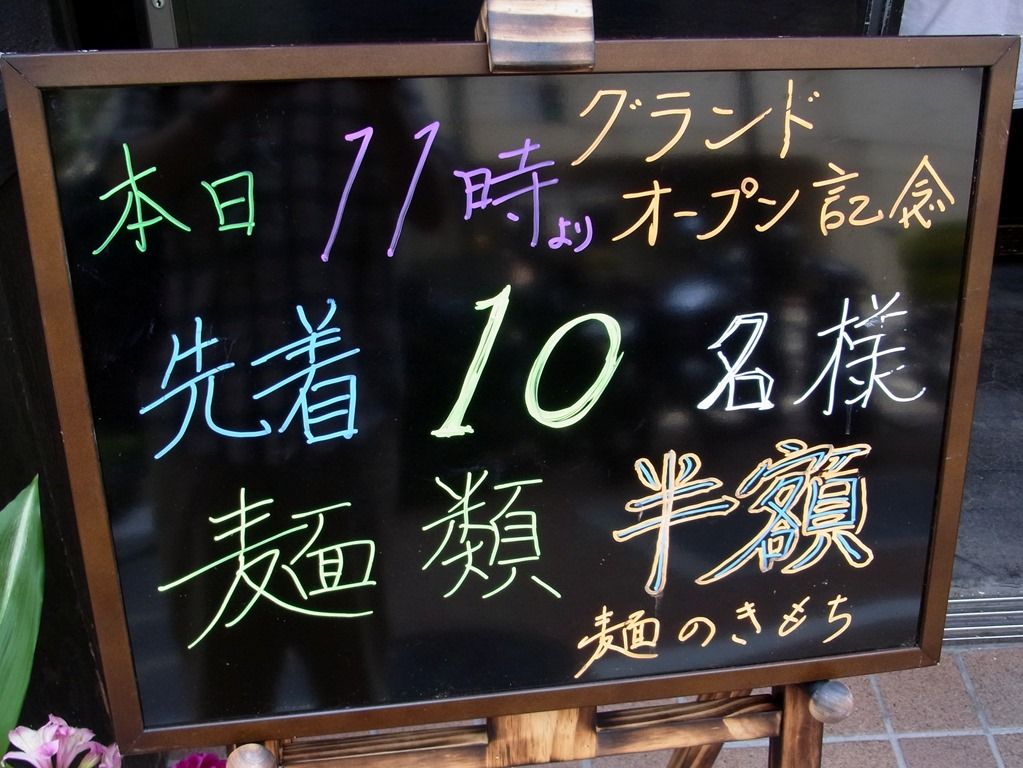 本日 11時より グランド
オープン記念
先着 10 名様
麺類 半額
麺のきもち